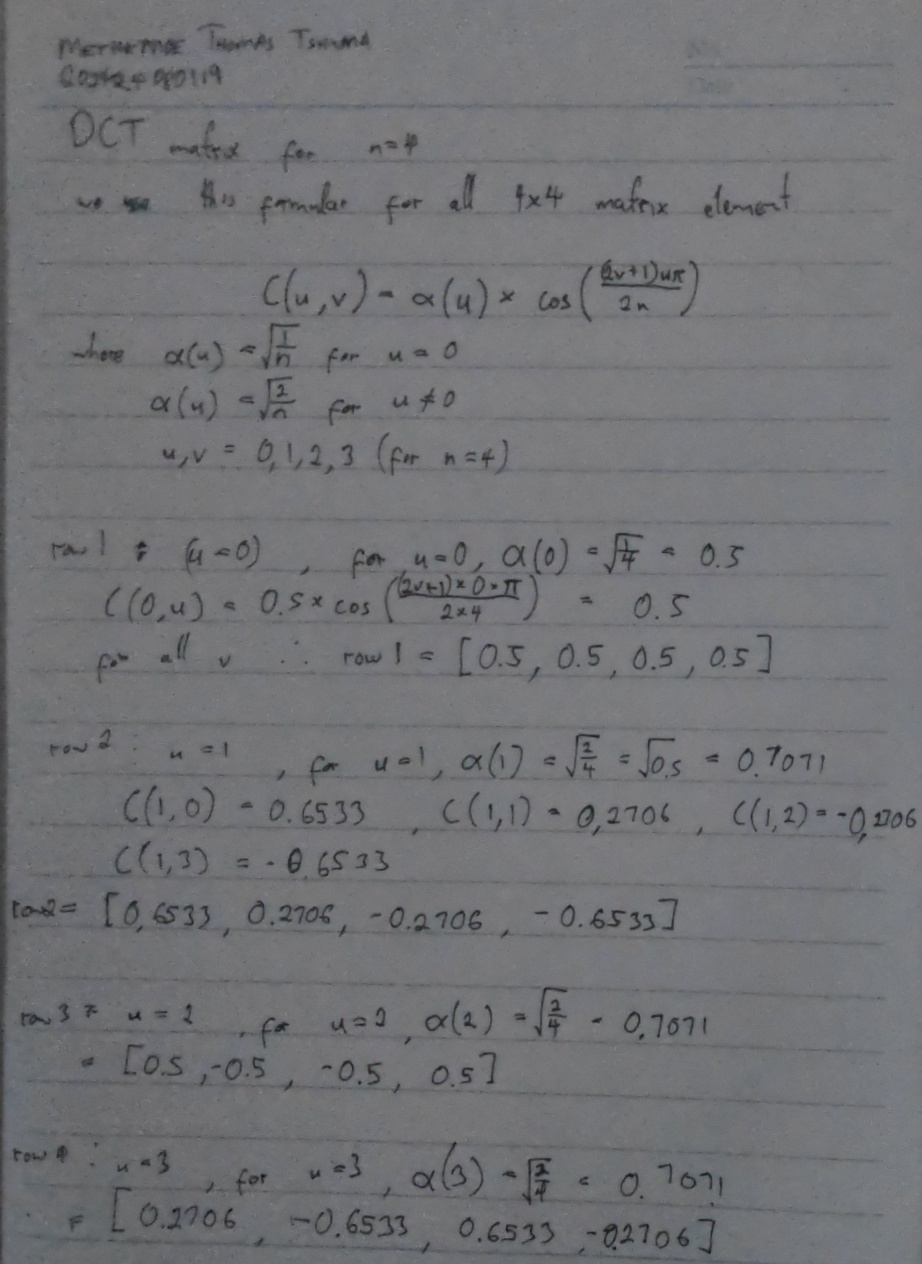 Thomas Tshuma
DCT matrix for n=4
we use this formular for all 4x4 matrix element
C(u,v) = α(u) × cos((2v+1)uπ / 2n)
where α(u) = √(1/n) for u = 0
α(u) = √(2/n) for u ≠ 0
u,v = 0,1,2,3 (for n=4)
row 1 : (u=0), for u=0, α(0) = √(1/4) = 0.5
C(0,u) = 0.5 × cos((2v+1)×0×π / 2×4) = 0.5
for all v ∴ row 1 = [0.5, 0.5, 0.5, 0.5]
row 2 : u = 1, for u=1, α(1) = √(2/4) = √0.5 = 0.7071
C(1,0) = 0.6533, C(1,1) = 0,2706, C(1,2) = -0,2706
C(1,3) = -0.6533
row2 = [0,6533, 0.2706, -0.2706, -0.6533]
row 3 : u = 2, for u=2, α(2) = √(2/4) = 0.7071
= [0.5, -0.5, -0.5, 0.5]
row 4 : u=3, for u=3, α(3) = √(2/4) = 0.7071
= [0.2706, -0.6533, 0.6533, -0.2706]